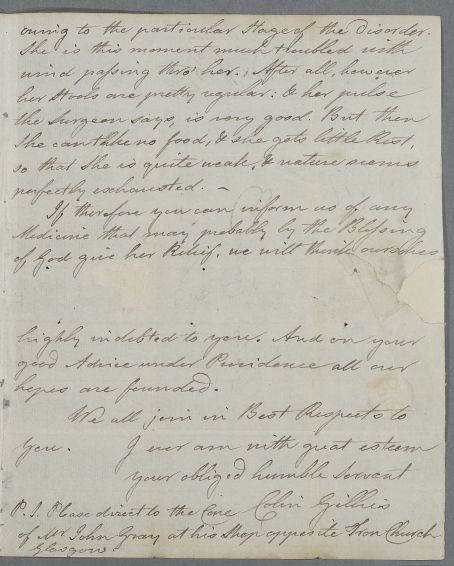 owing to the particular Stage of the Disorder.
She is this moment much troubled with
wind passing thro' her. After all, however
her Stools are pretty regular: & her pulse
the Surgeon says, is very good. But then
She can take no food, & she gets little Rest,
so that She is quite weak, & nature seems
perfectly exhausted. –
If therefore you can inform us of any
Medicine that may probably by the Blessing
of God give her Relief, we will think ourselves
highly indebted to you. And on your
good Advice under Providence all our
hopes are founded.
We all join in Best Respects to
you. I ever am with great esteem
your obliged humble Servant
Colin Gillies
P.S. Please direct to the Care
of Mr John Gray at his Shop opposite Tron Church
Glasgow.